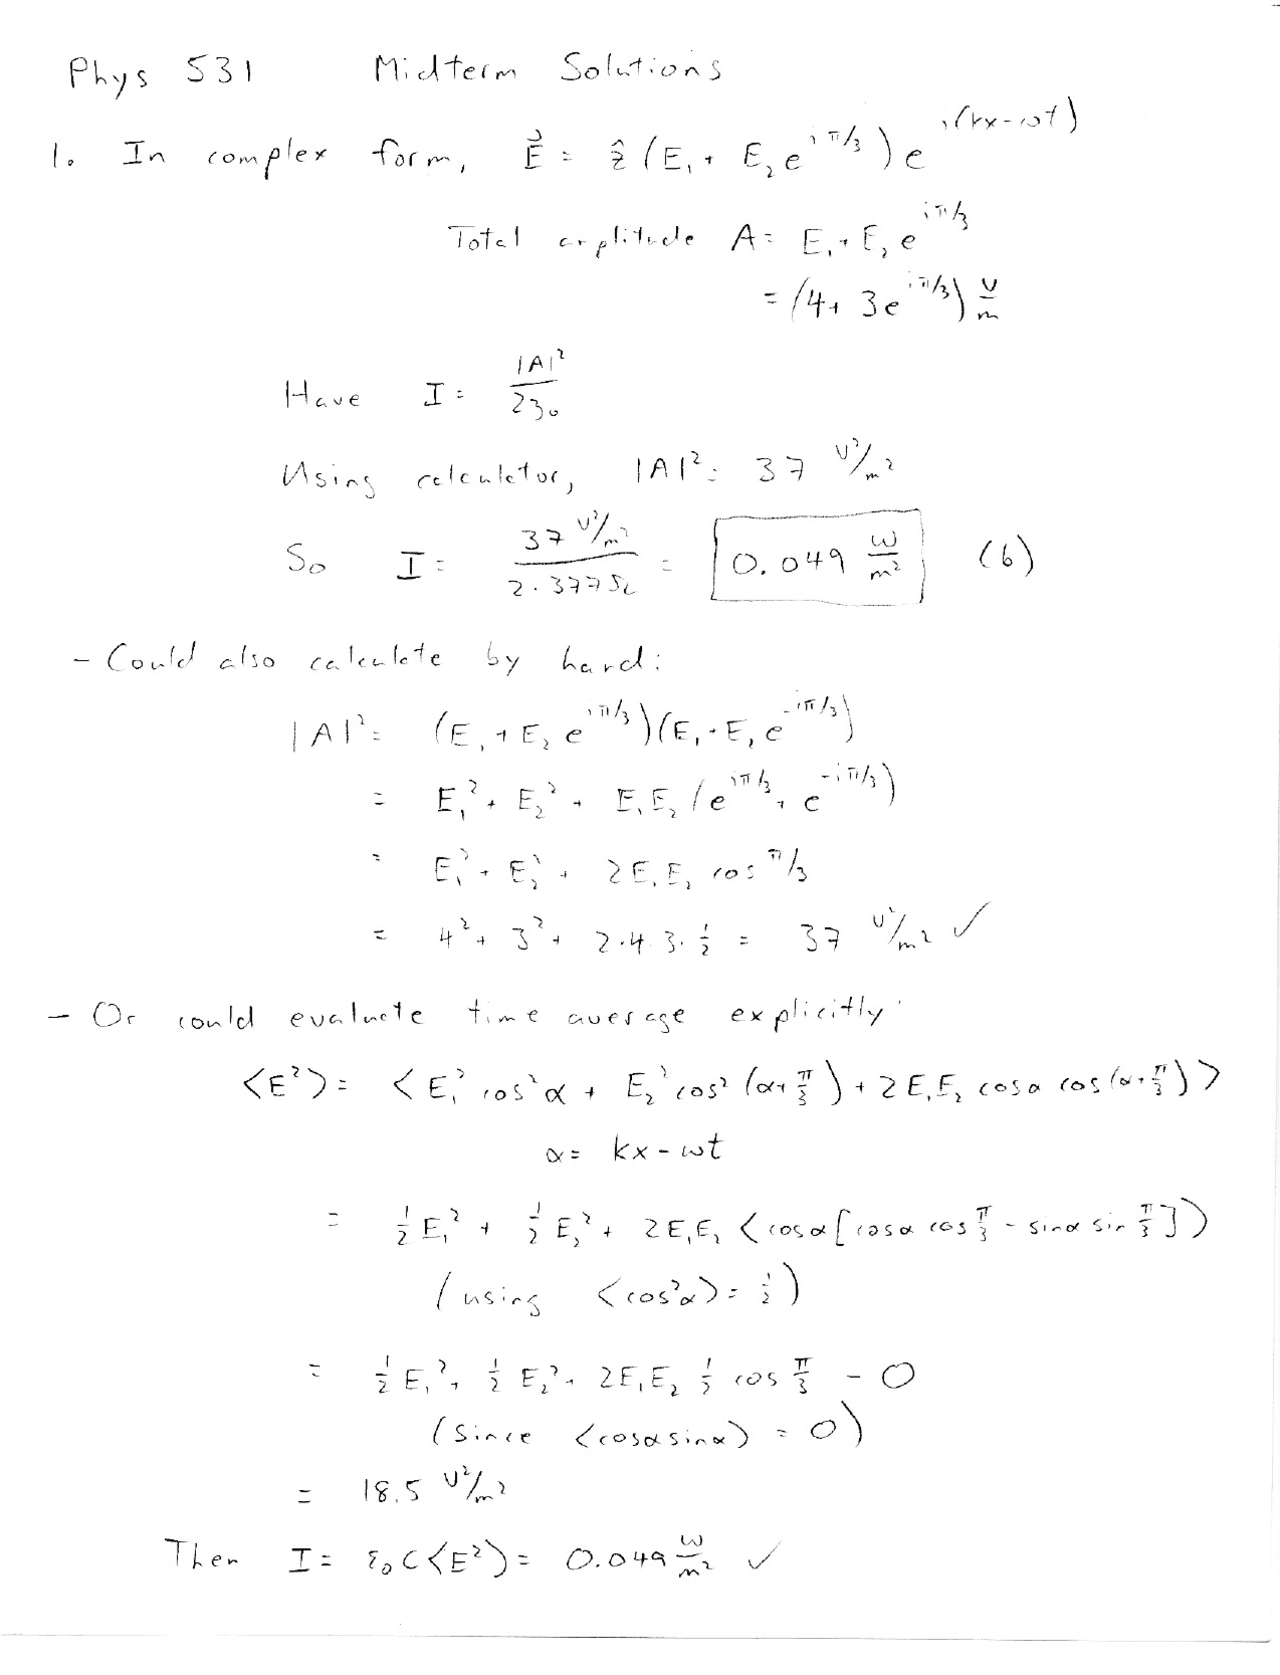 Phys 531 Midterm Solutions
1. In complex form, E⃗ = ẑ (E₁ + E₂ e^{iπ/3}) e^{i(kx-ωt)}
Total amplitude A = E₁ + E₂ e^{iπ/3}
= (4 + 3e^{iπ/3}) V/m
Have I = |A|²/2η₀
Using calculator, |A|² = 37 V²/m²
So I = (37 V²/m²)/(2·377Ω) = 0.049 W/m² (6)
- Could also calculate by hand:
|A|² = (E₁ + E₂ e^{iπ/3})(E₁ + E₂ e^{-iπ/3})
= E₁² + E₂² + E₁E₂ (e^{iπ/3} + e^{-iπ/3})
= E₁² + E₂² + 2E₁E₂ cos π/3
= 4² + 3² + 2·4·3·½ = 37 V²/m² ✓
- Or could evaluate time average explicitly:
⟨E²⟩ = ⟨E₁² cos²α + E₂² cos²(α+π/3) + 2E₁E₂ cosα cos(α+π/3)⟩
α = kx - ωt
= ½E₁² + ½E₂² + 2E₁E₂ ⟨cosα[cosα cos π/3 - sinα sin π/3]⟩
(using ⟨cos²α⟩ = ½)
= ½E₁² + ½E₂² + 2E₁E₂ ½ cos π/3 - 0
(since ⟨cosα sinα⟩ = 0)
= 18.5 V²/m²
Then I = ε₀c⟨E²⟩ = 0.049 W/m² ✓